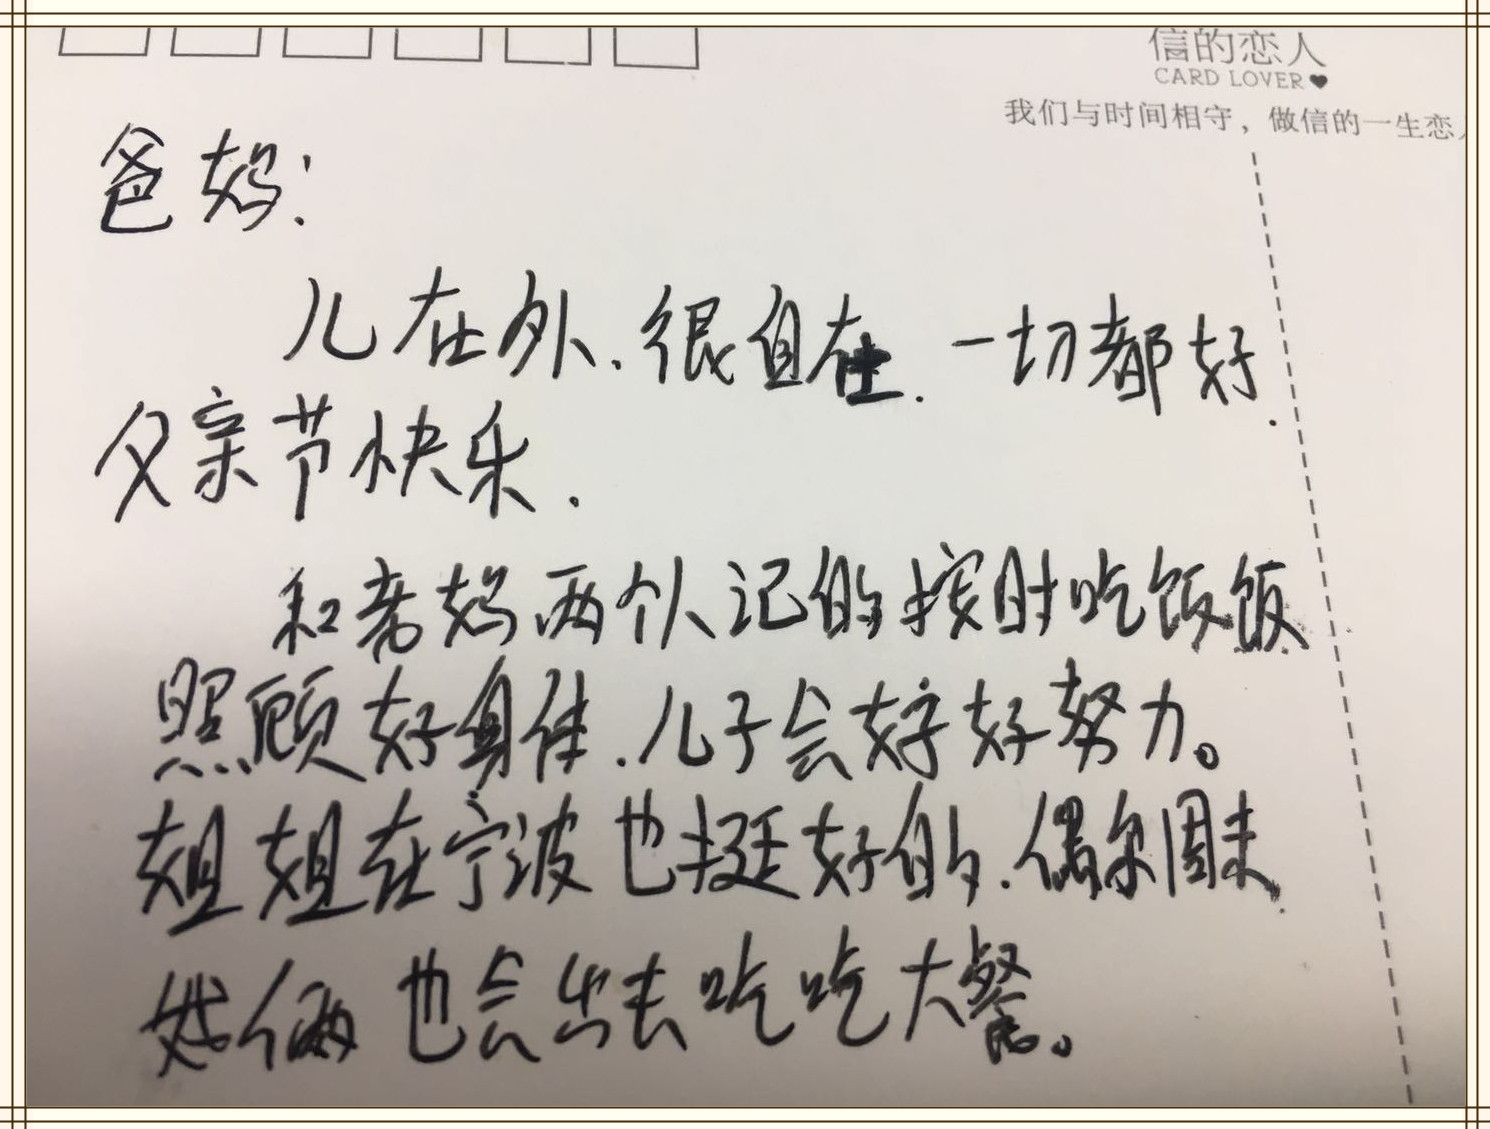 信的恋人
CARD LOVER
我们与时间相守，做信的一生恋人
爸妈：
儿在外.很自在.一切都好.
父亲节快乐.
和老妈两个人记的按时吃饭饭
照顾好身体.儿子会好好努力。
姐姐在宁波也挺好的.偶尔周末
俩也会出去吃吃大餐。